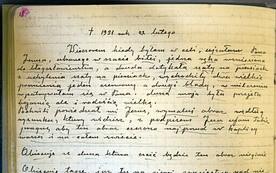 † 1931 rok 22 lutego
Wieczorem kiedy byłam w celi, ujrzałam Pana
Jezusa, ubranego w szacie białej, jedna ręka wzniesiona
do błogosławieństwa, a druga dotykała szaty na piersiach,
z uchylenia szaty na piersiach, wychodziły dwa wielkie
promienie jeden czerwony a drugi blady, w milczeniu
wpatrywałam się w Pana, dusza moja była przejęta
bojaźnią, ale i radością wielką.
Po chwili powiedział mi Jezus, wymaluj obraz według
rysunku, który widzisz, z podpisem Jezu ufam Tobie,
pragnę, aby ten obraz czczono najpierw w kaplicy
waszej i na całym świecie.
Obiecuję, że dusza, która czcić będzie ten obraz nie zginie.
Obiecuję także, już tu na ziemi